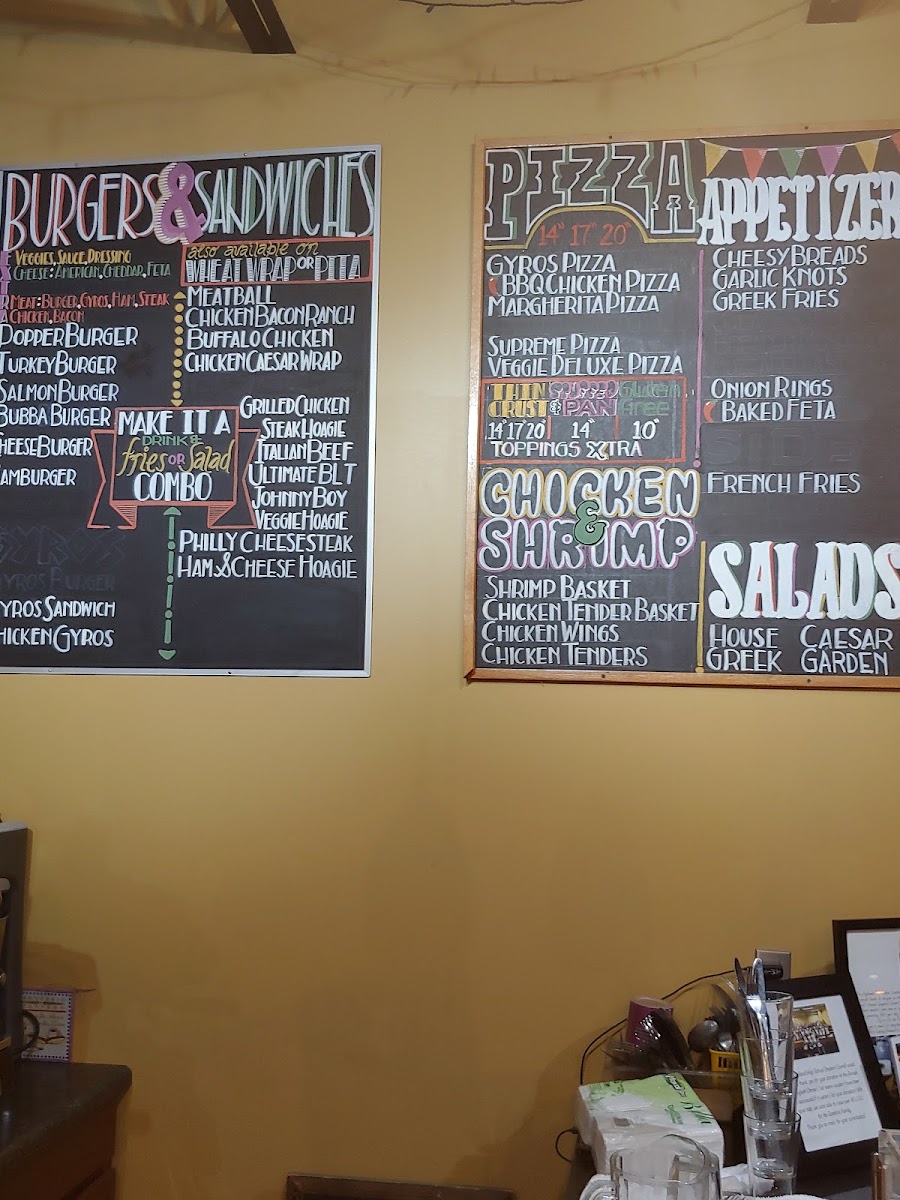 BURGERS & SANDWICHES
EXTRA
VEGGIES, SAUCE, DRESSING
CHEESE: AMERICAN, CHEDDAR, FETA
MEAT: BURGER, GYROS, HAM, STEAK
CHICKEN, BACON
POPPER BURGER
TURKEY BURGER
SALMON BURGER
BUBBA BURGER
CHEESE BURGER
AMBURGER
GYROS
GYROS BURGER
GYROS SANDWICH
HICKEN GYROS
also available on
WHEAT WRAP OR PITA
MEATBALL
CHICKEN BACON RANCH
BUFFALO CHICKEN
CHICKEN CAESAR WRAP
MAKE IT A
DRINK &
fries OR Salad
COMBO
GRILLED CHICKEN
STEAK HOAGIE
ITALIAN BEEF
ULTIMATE BLT
JOHNNY BOY
VEGGIE HOAGIE
PHILLY CHEESESTEAK
HAM & CHEESE HOAGIE
PIZZA
14" 17" 20"
GYROS PIZZA
BBQ CHICKEN PIZZA
MARGHERITA PIZZA
SUPREME PIZZA
VEGGIE DELUXE PIZZA
THIN
CRUST
14" 17" 20"
PAN
14"
Gluten
Free
10"
TOPPINGS XTRA
CHICKEN
&
SHRIMP
SHRIMP BASKET
CHICKEN TENDER BASKET
CHICKEN WINGS
CHICKEN TENDERS
APPETIZER
CHEESY BREADS
GARLIC KNOTS
GREEK FRIES
ONION RINGS
BAKED FETA
FRENCH FRIES
SALADS
HOUSE CAESAR
GREEK GARDEN